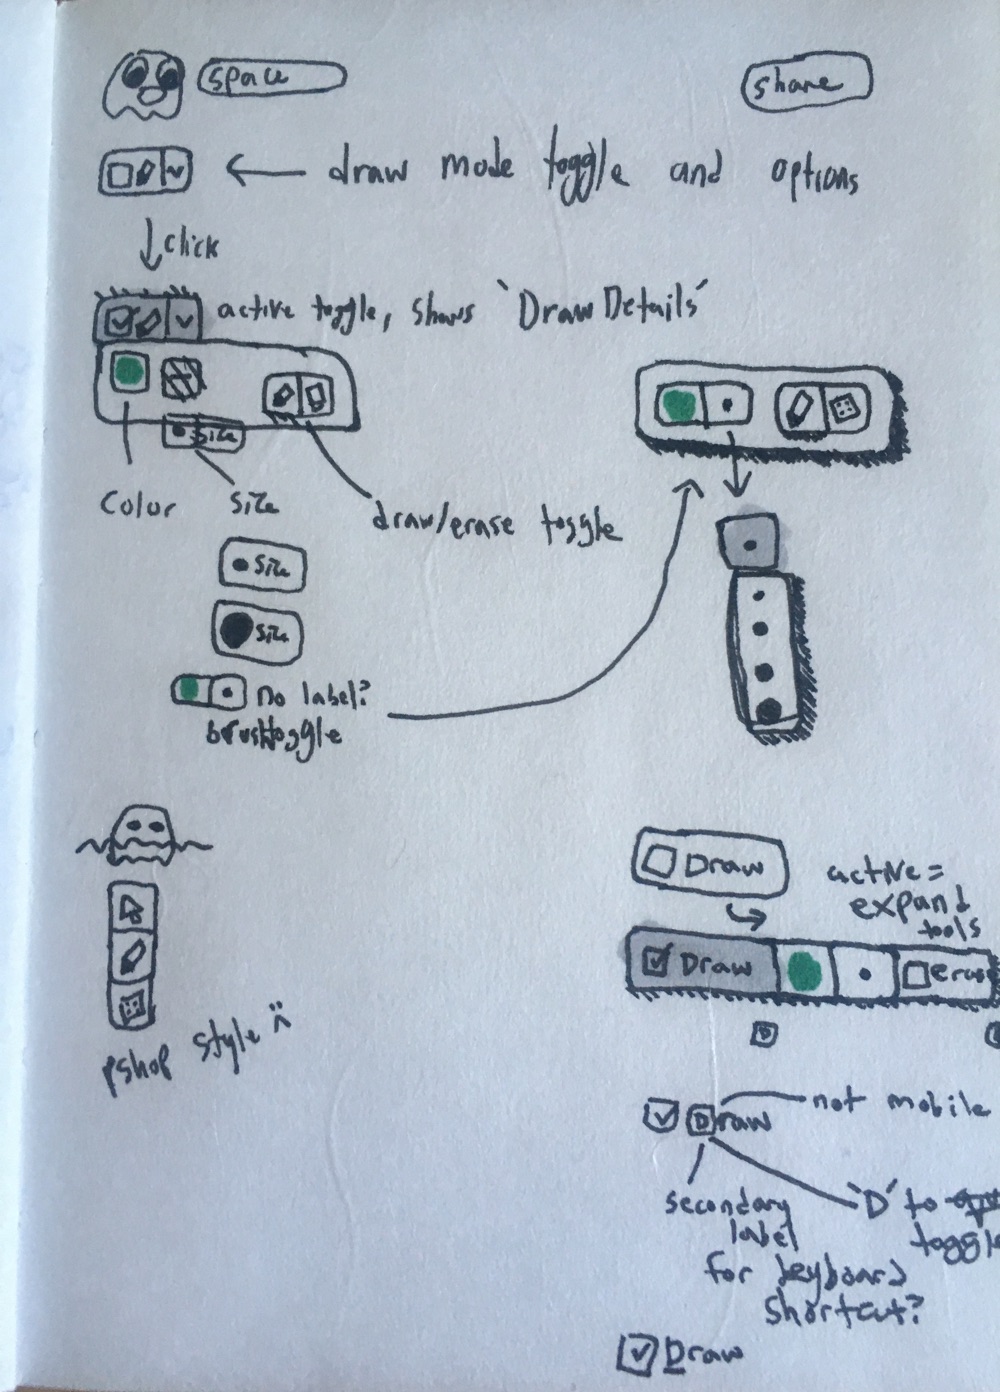 space
share
← draw mode toggle and options
↓ click
active toggle, shows `Draw Details´
size
color
size
draw/erase toggle
size
size
no label?
brush toggle
pshop style
Draw
active =
expand
tools
Draw
eras
D
Draw
not mobile
secondary
label
for keyboard
shortcut?
`D´ to
toggle
Draw